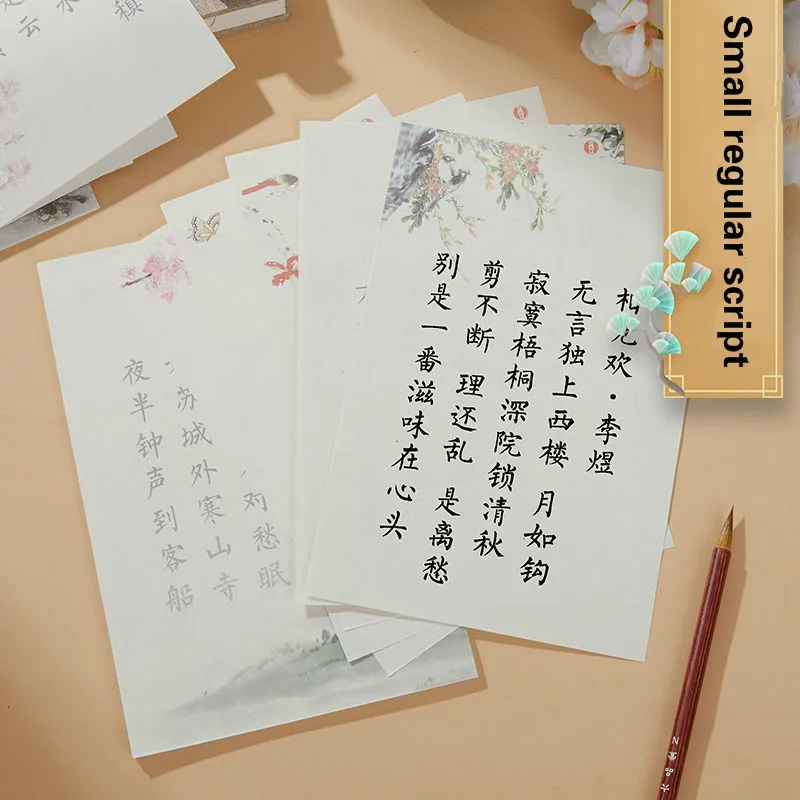 Small regular script
相见欢·李煜
无言独上西楼 月如钩
寂寞梧桐深院锁清秋
剪不断 理还乱 是离愁
别是一番滋味在心头
对愁眠
苏城外寒山寺
夜半钟声到客船
稹
云
六品堂